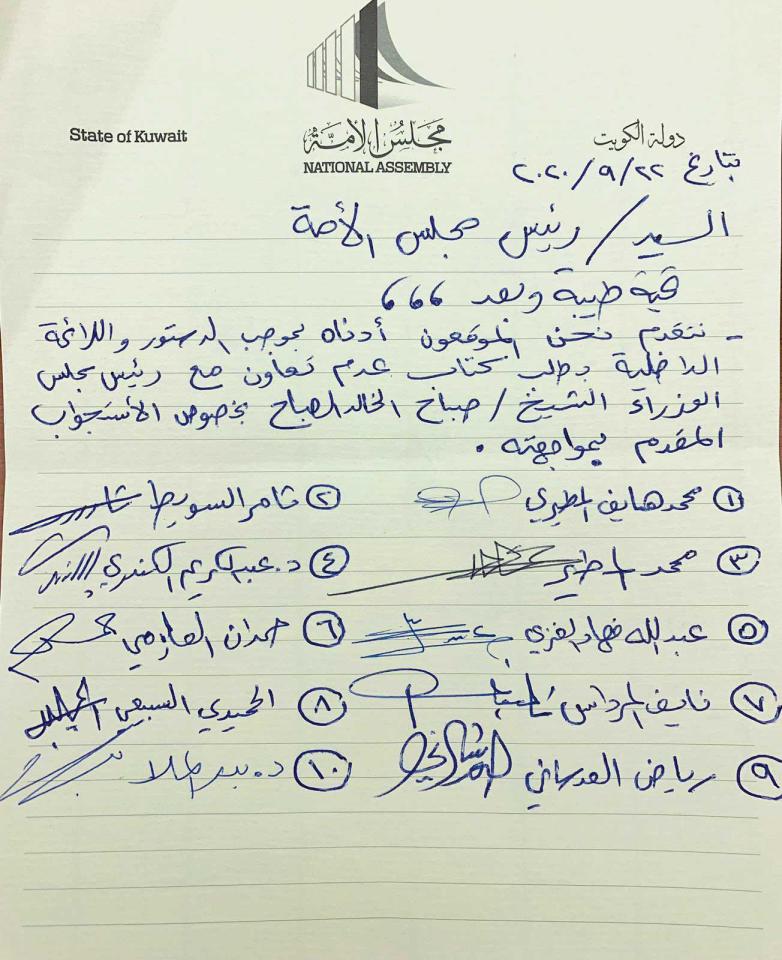 State of Kuwait
مجلس الأمة
NATIONAL ASSEMBLY
دولة الكويت
بتاريخ ٢٠٢٠/٩/٢٢
السيد / رئيس مجلس الأمة
تحية طيبة وبعد ،،،
- نتقدم نحن الموقعون أدناه بموجب الدستور واللائحة
الداخلية بطلب كتاب عدم تعاون مع رئيس مجلس
الوزراء الشيخ / صباح الخالد الصباح بخصوص الأستجواب
المقدم بمواجهته .
١ محمد هايف المطيري ٢ ثامر السويط
٣ محمد المطير ٤ د. عبدالكريم الكندري
٥ عبدالله فهاد العنزي ٦ حمدان العازمي
٧ نايف المرداس ٨ الحميدي السبيعي
٩ رياض العدساني ١٠ د. بدر الملا